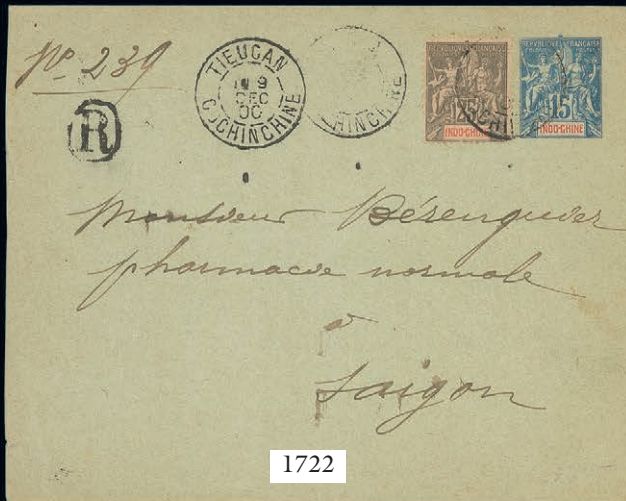 No 239
R
TIEUCAN
9
DEC
00
COCHINCHINE
HINCHINE
REPUBLIQUE FRANCAISE
25
INDO-CHINE
REPUBLIQUE FRANCAISE
15
INDO-CHINE
Monsieur Bérenguier
pharmacie normale
à
Saigon
1722